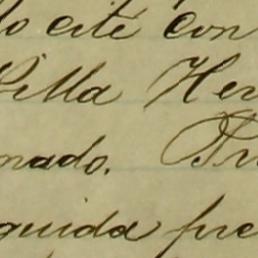 lo cité con
Villa Her
nado. Pr
guida fue